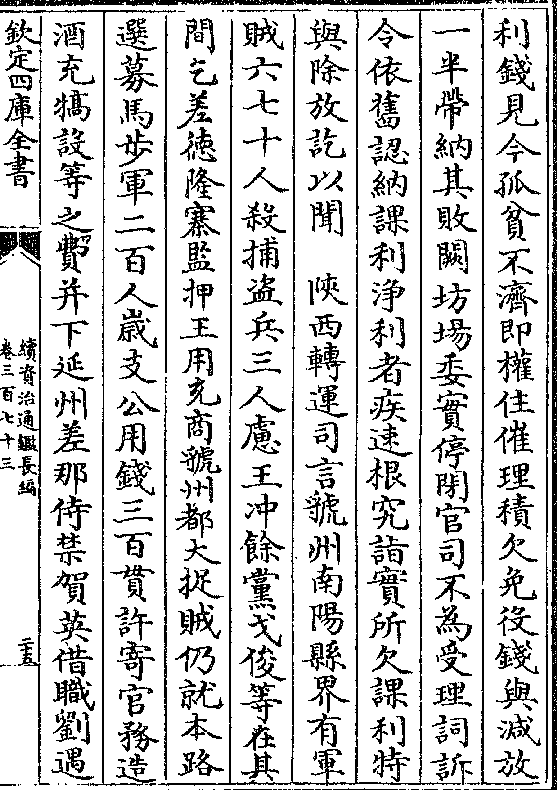 利錢見今孤貧不濟即權住催理積欠免役錢與減放
一半帶納其敗闕坊場委實停閉官司不為受理詞訴
令依舊認納課利淨利者疾速根究詣實所欠課利特
與除放訖以聞　陜西轉運司言虢州南陽縣界有軍
賊六七十人殺捕盗兵三人慮王冲餘黨戈俊等在其
間乞差徳隆寨監押王用充商虢州都大捉賊仍就本路
選募馬步軍二百人嵗支公用錢三百貫許寄官務造
酒充犒設等之費并下延州差那侍禁賀英借職劉遇
欽定四庫全書
續資治通鑑長編
卷三百七十三
二十五